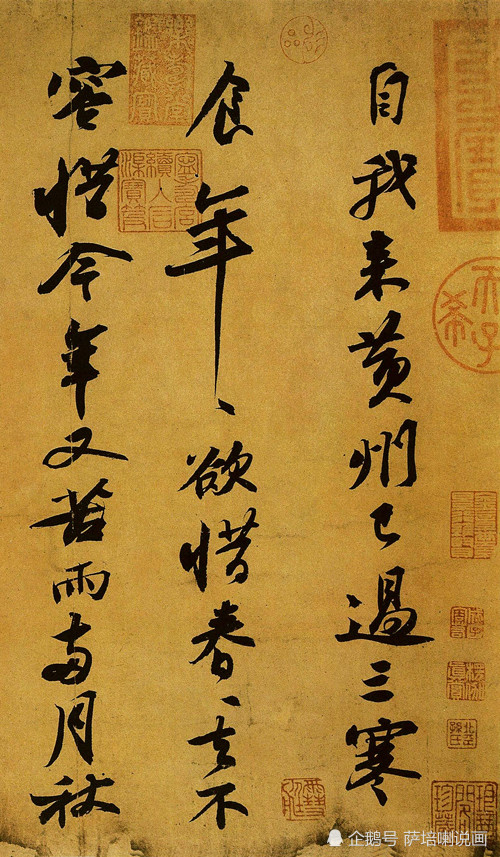 自我来黄州已過三寒
食年、欲惜春、去不
容惜今年又苦雨兩月秋
企鹅号 萨培喇说画